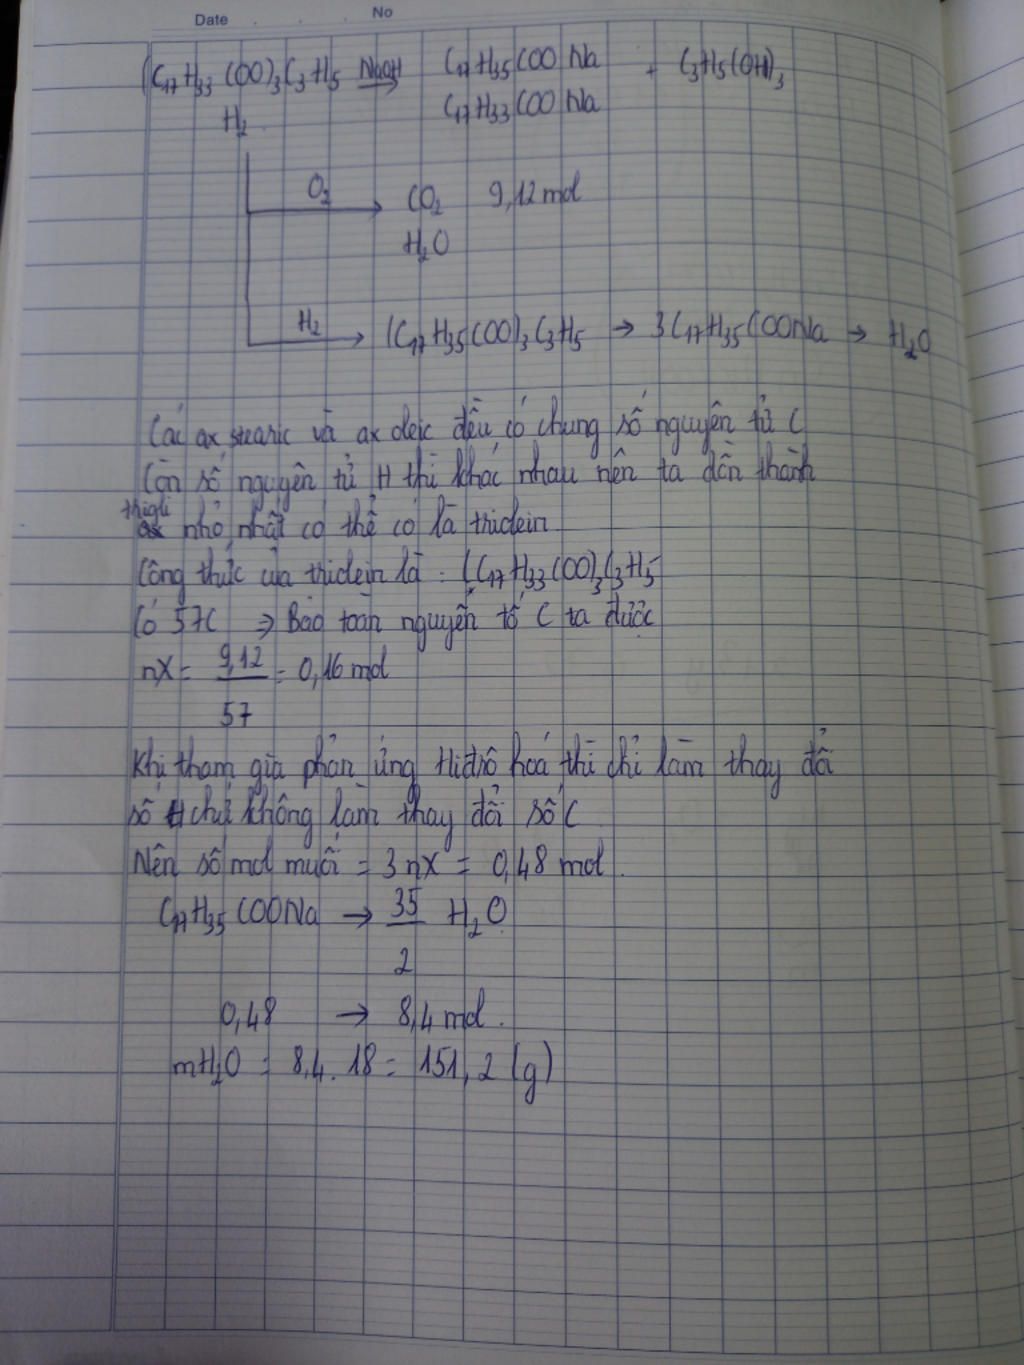 Date . . . No
(C17H33COO)3C3H5 NaOH→ C17H35COONa + C3H5(OH)3
H2 C17H33COONa
O2 → CO2 9,12 mol
H2O
H2 → (C17H35COO)3C3H5 → 3C17H35COONa → H2O
Các ax stearic và ax oleic đều có chung số nguyên tử C
Còn số nguyên tử H thì khác nhau nên ta dồn thành
nhỏ nhất có thể có là triolein
Công thức của triolein là : (C17H33COO)3C3H5
Có 57C ⇒ Bảo toàn nguyên tố C ta được
nX = 9,12/57 = 0,16 mol
Khi tham gia phản ứng Hiđrô hoá thì chỉ làm thay đổi
số H chứ không làm thay đổi số C
Nên số mol muối = 3nX = 0,48 mol.
C17H35COONa → 35/2 H2O
0,48 → 8,4 mol.
mH2O = 8,4 . 18 = 151,2 (g)